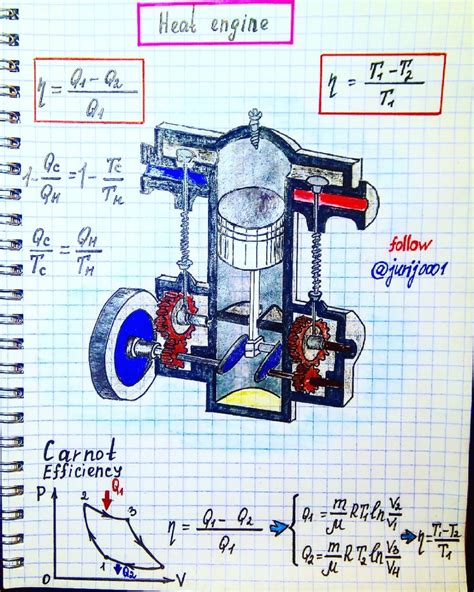 Heat engine
η = Q1 - Q2 / Q1
η = T1 - T2 / T1
1 - Qc / QH = 1 - Tc / TH
Qc / Tc = QH / TH
follow
@jurijooo1
Carnot
Efficiency
P
2
Q1
3
1
Q2
0
V
η = Q1 - Q2 / Q1
Q1 = m/μ RT1 ln V2/V1
Q2 = m/μ RT2 ln V3/V4
η = T1-T2 / T1